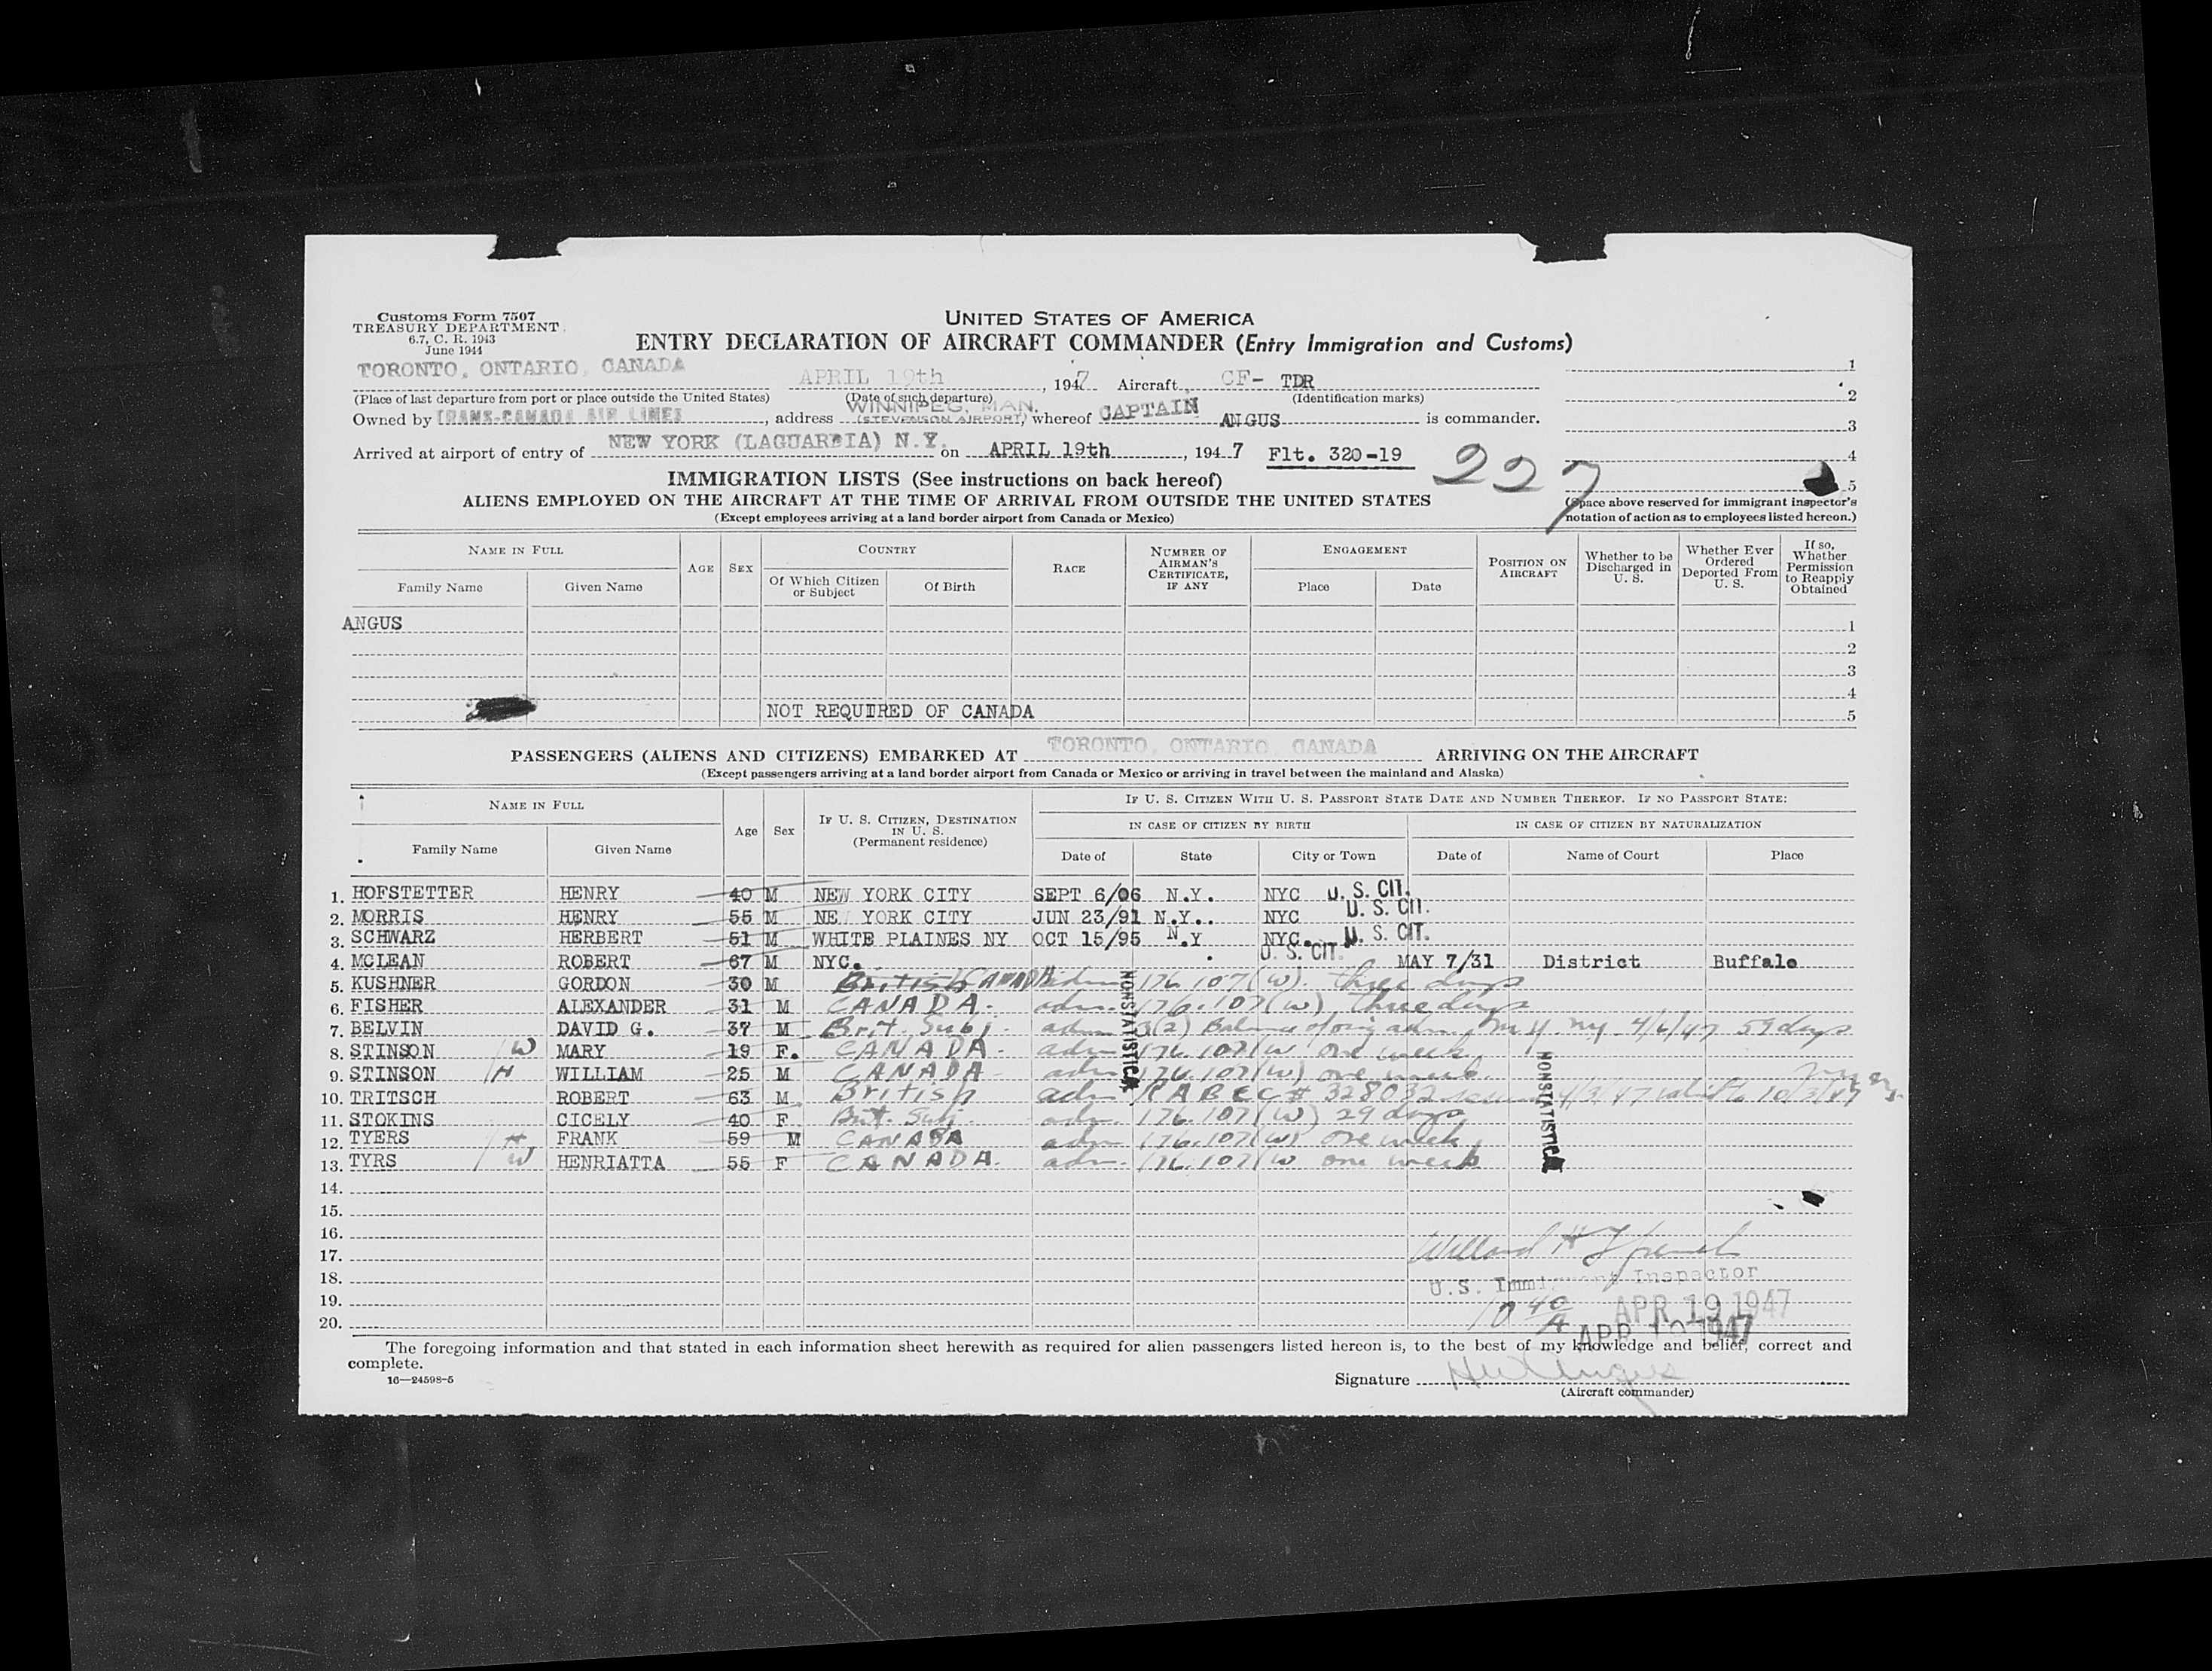 Customs Form 7507
TREASURY DEPARTMENT
6.7, C. R. 1943
June 1944
UNITED STATES OF AMERICA
ENTRY DECLARATION OF AIRCRAFT COMMANDER (Entry Immigration and Customs)
TORONTO, ONTARIO, CANADA APRIL 19th, 1947 Aircraft CF- TDR 1
(Place of last departure from port or place outside the United States) (Date of such departure) (Identification marks) 2
Owned by TRANS-CANADA AIR LINES, address WINNIPEG, MAN. (STEVENSON AIRPORT), whereof CAPTAIN ANGUS is commander. 3
Arrived at airport of entry of NEW YORK (LAGUARDIA) N.Y. on APRIL 19th, 1947 Flt. 320-19 227 4
IMMIGRATION LISTS (See instructions on back hereof) 5
ALIENS EMPLOYED ON THE AIRCRAFT AT THE TIME OF ARRIVAL FROM OUTSIDE THE UNITED STATES
(Except employees arriving at a land border airport from Canada or Mexico)
(Space above reserved for immigrant inspector's notation of action as to employees listed hereon.)
NAME IN FULL AGE SEX COUNTRY RACE NUMBER OF AIRMAN'S CERTIFICATE, IF ANY ENGAGEMENT POSITION ON AIRCRAFT Whether to be Discharged in U. S. Whether Ever Ordered Deported From U. S. If so, Whether Permission to Reapply Obtained
Family Name Given Name Of Which Citizen or Subject Of Birth Place Date
ANGUS 1
2
3
4
NOT REQUIRED OF CANADA 5
PASSENGERS (ALIENS AND CITIZENS) EMBARKED AT TORONTO, ONTARIO, CANADA ARRIVING ON THE AIRCRAFT
(Except passengers arriving at a land border airport from Canada or Mexico or arriving in travel between the mainland and Alaska)
NAME IN FULL Age Sex IF U. S. CITIZEN, DESTINATION IN U. S. (Permanent residence) IF U. S. CITIZEN WITH U. S. PASSPORT STATE DATE AND NUMBER THEREOF. IF NO PASSPORT STATE:
IN CASE OF CITIZEN BY BIRTH IN CASE OF CITIZEN BY NATURALIZATION
Family Name Given Name Date of State City or Town Date of Name of Court Place
1. HOFSTETTER HENRY 40 M NEW YORK CITY SEPT 6/06 N.Y. NYC U. S. CIT.
2. MORRIS HENRY 55 M NE YORK CITY JUN 23/91 N.Y.. NYC U. S. CIT.
3. SCHWARZ HERBERT 51 M WHITE PLAINES NY OCT 15/95 N.Y NYC. U. S. CIT.
4. MCLEAN ROBERT 67 M NYC. U. S. CIT. MAY 7/31 District Buffalo
5. KUSHNER GORDON 30 M British CANADA adm 176.107(W). three days
6. FISHER ALEXANDER 31 M CANADA. adm. 176.107(W) three days
7. BELVIN DAVID G. 37 M Brit. Subj. adm 3(2) Balance of orig adm. NY 4/6/47 59 days
8. STINSON W MARY 19 F. CANADA. adm 176.107(W one week
9. STINSON H WILLIAM 25 M CANADA adm 176.107(W) one week.
10. TRITSCH ROBERT 63 M British adm RABEC # 328032 4/3/47 valid to 10/3/47
11. STOKINS CICELY 40 F Brit. Subj. adm. 176.107(W) 29 days
12. TYERS H FRANK 59 M CANADA adm 176.107(W) one week
13. TYRS W HENRIATTA 55 F CANADA. adm. 176.107(W one week
NONSTATISTICAL
NONSTATISTICAL
14.
15.
16.
17. Willard H
18.
19. U.S. Immigrant Inspector
20. 10 40 A APR 19 1947
APR 19 1947
The foregoing information and that stated in each information sheet herewith as required for alien passengers listed hereon is, to the best of my knowledge and belief, correct and
complete.
16—24598-5
Signature Angus
(Aircraft commander)